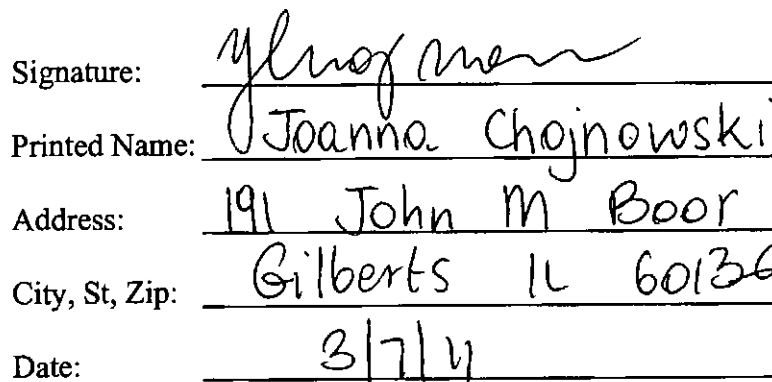 Signature:
Printed Name: Joanna Chojnowski
Address: 191 John M Boor
City, St, Zip: Gilberts IL 60136
Date: 3/7/11